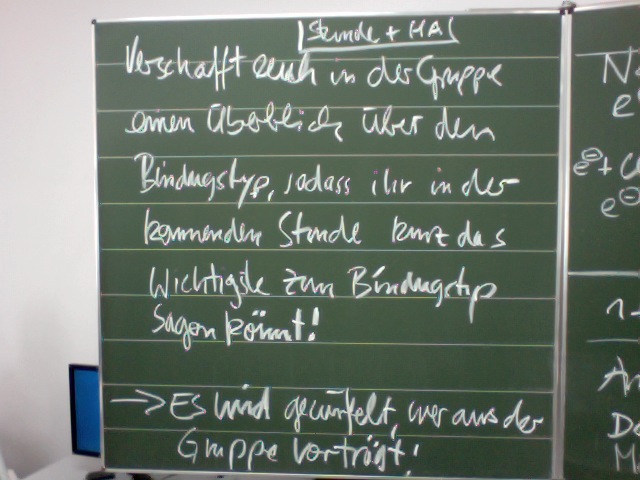 Stunde + HA
Verschafft euch in der Gruppe
einen Überblick über den
Bindungstyp, sodass ihr in der
kommenden Stunde kurz das
Wichtigste zum Bindungstyp
sagen könnt!
→ Es wird gewürfelt, wer aus der
Gruppe vorträgt!
e⊖+
e⊖